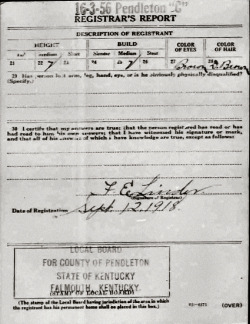 16-3-56 Pendleton "C"
REGISTRAR'S REPORT
DESCRIPTION OF REGISTRANT
HEIGHT BUILD COLOR OF EYES COLOR OF HAIR
Medium Short Slender Medium Stout
21 22 23 24 25 26 27 Brown 28 Brown
29 Has person lost arm, leg, hand, eye, or is he obviously physically disqualified?
(Specify.)
30 I certify that my answers are true; that the person registered has read or has
had read to him his own answers; that I have witnessed his signature or mark,
and that all of his answers of which I have knowledge are true, except as follows:
F E Linder
(Signature of Registrar)
Date of Registration Sept. 12, 1918
LOCAL BOARD
FOR COUNTY OF PENDLETON
STATE OF KENTUCKY
FALMOUTH, KENTUCKY
(STAMP OF LOCAL BOARD)
(The stamp of the Local Board having jurisdiction of the area in which
the registrant has his permanent home shall be placed in this box.)
(OVER)